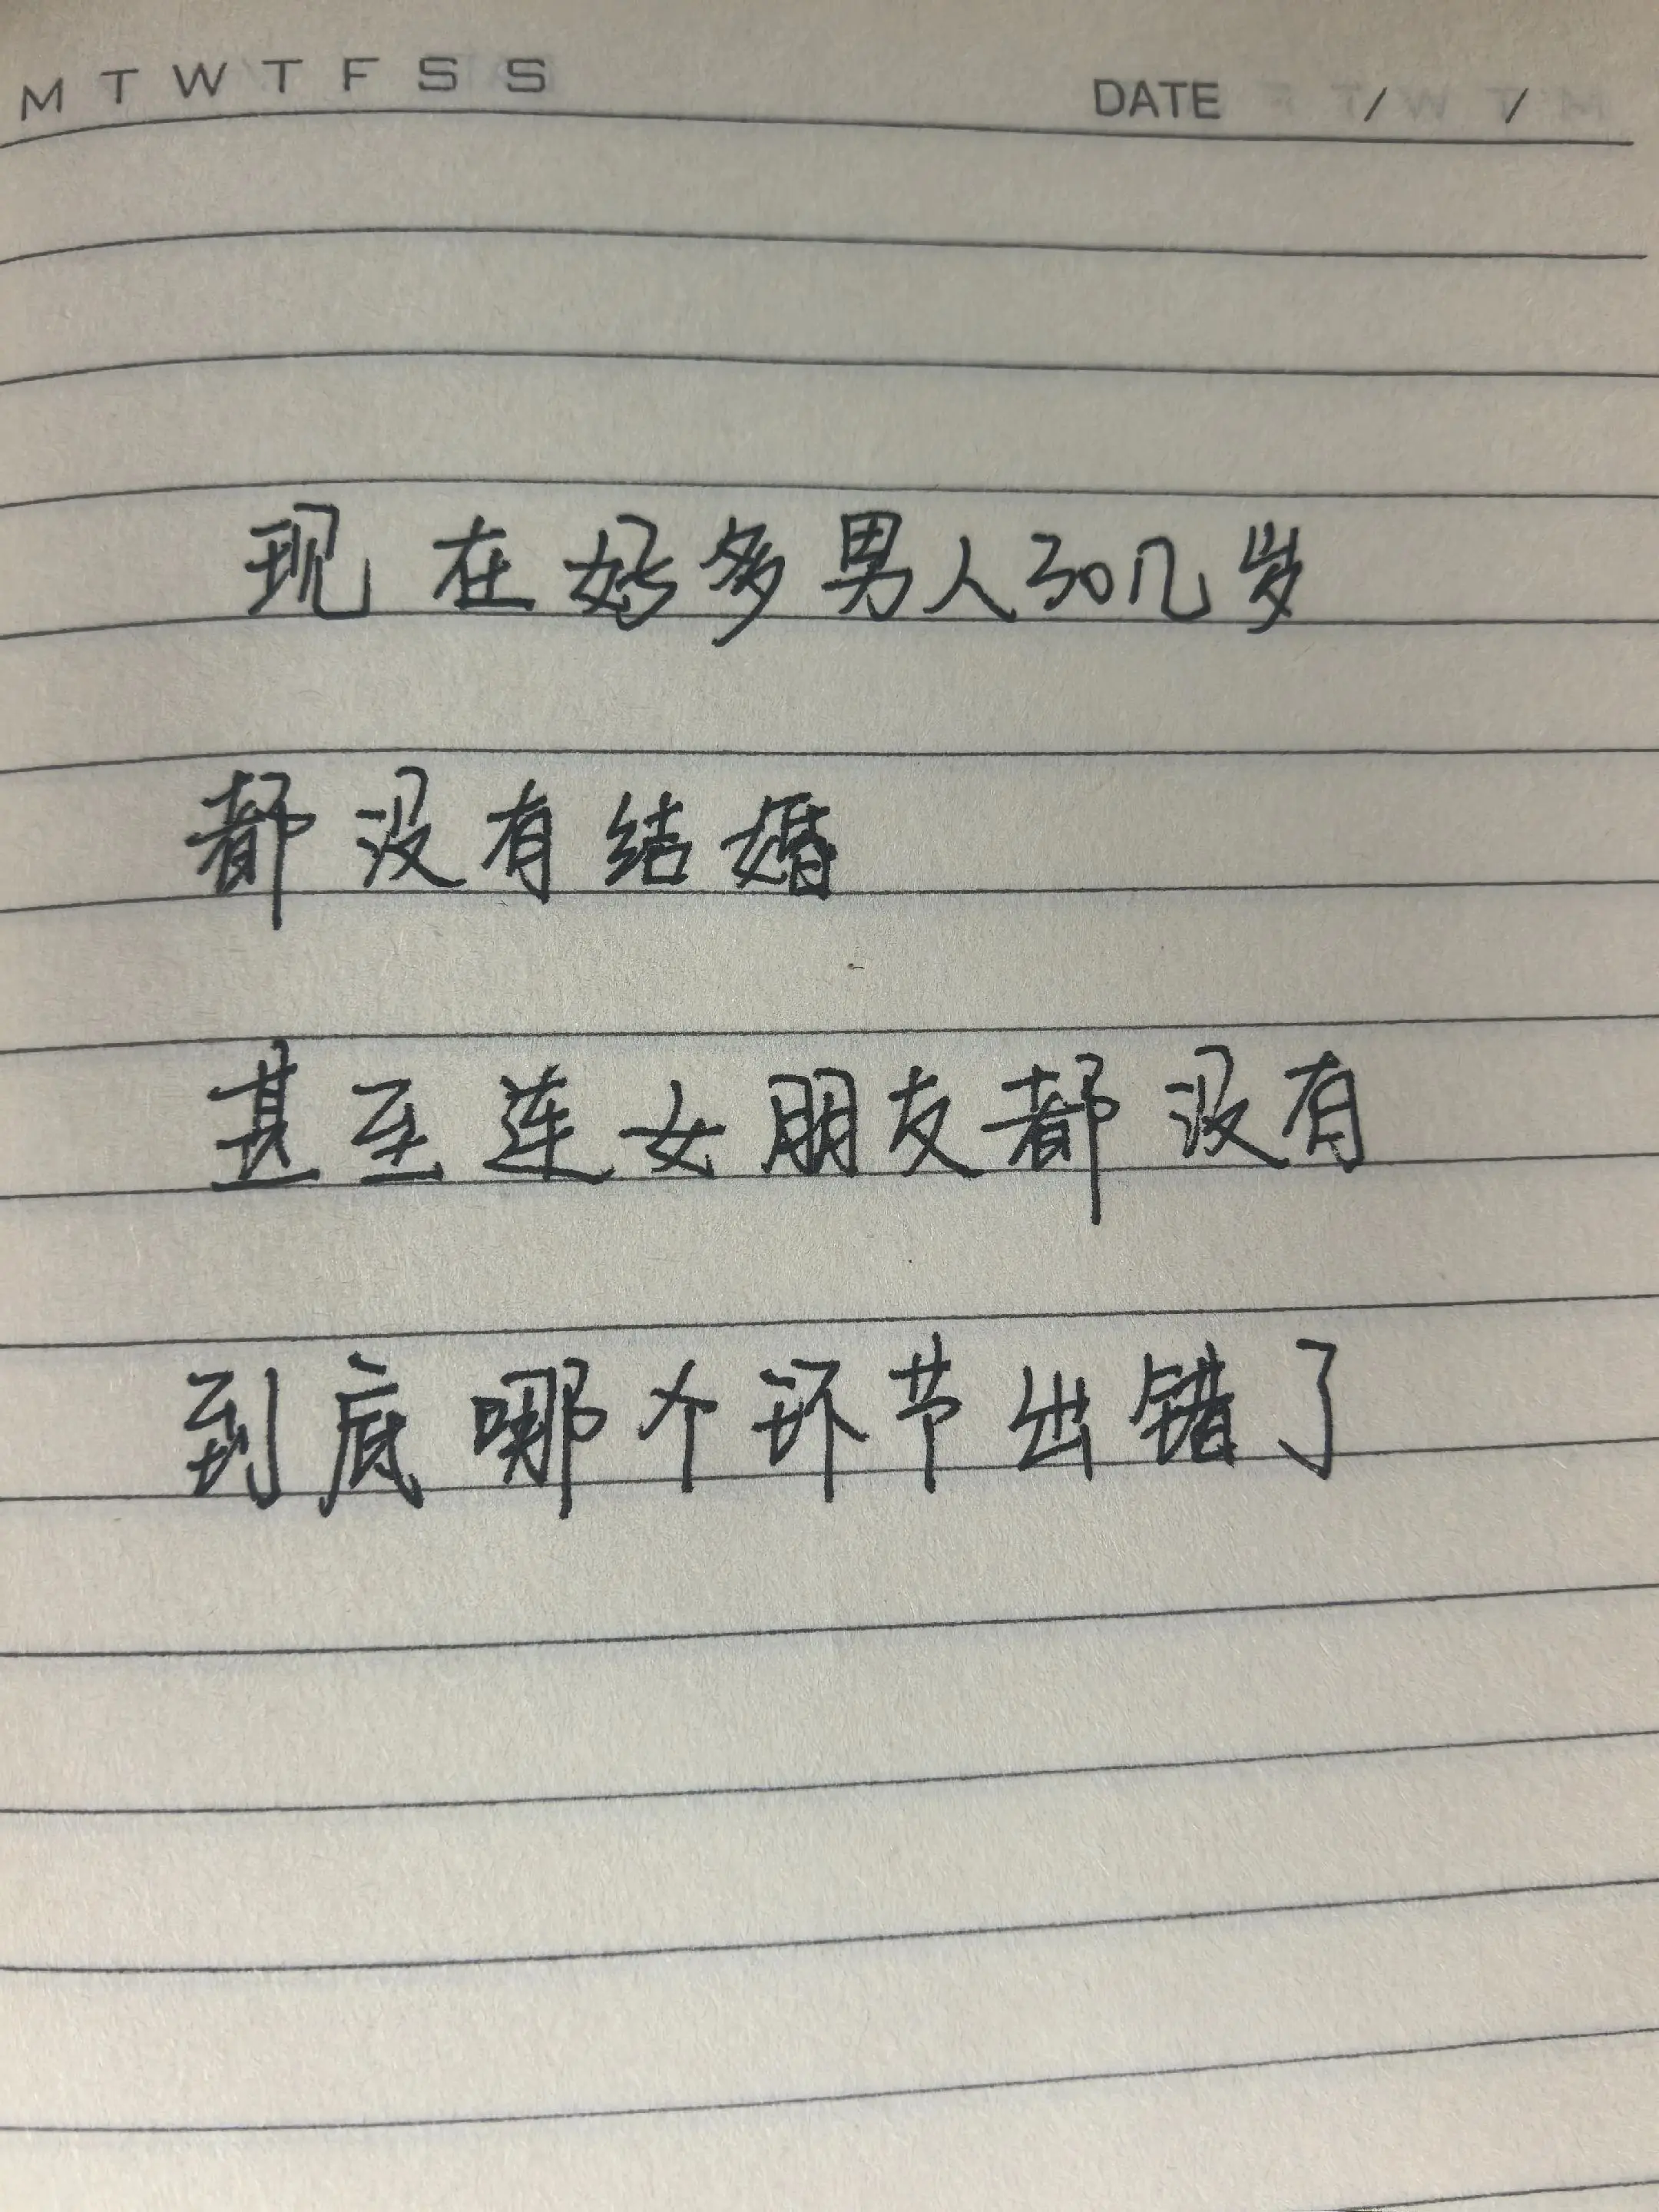 M T W T F S S
DATE / /
现在好多男人30几岁
都没有结婚
甚至连女朋友都没有
到底哪个环节出错了